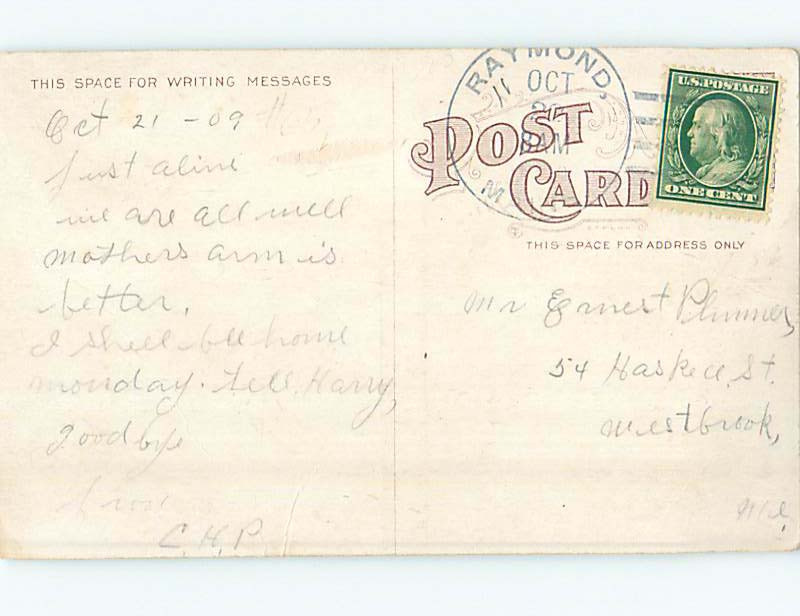 THIS SPACE FOR WRITING MESSAGES
Oct 21 - 09
Just a line
we are all well
mothers arm is
better,
I shall be home
monday. Tell Harry,
Good bye
from
C. H. P.
RAYMOND,
OCT
8 AM
M
POST CARD
U.S. POSTAGE
ONE CENT
THIS SPACE FOR ADDRESS ONLY
Mr Ernest Plummer,
54 Haskell St.
Westbrook,
Me,